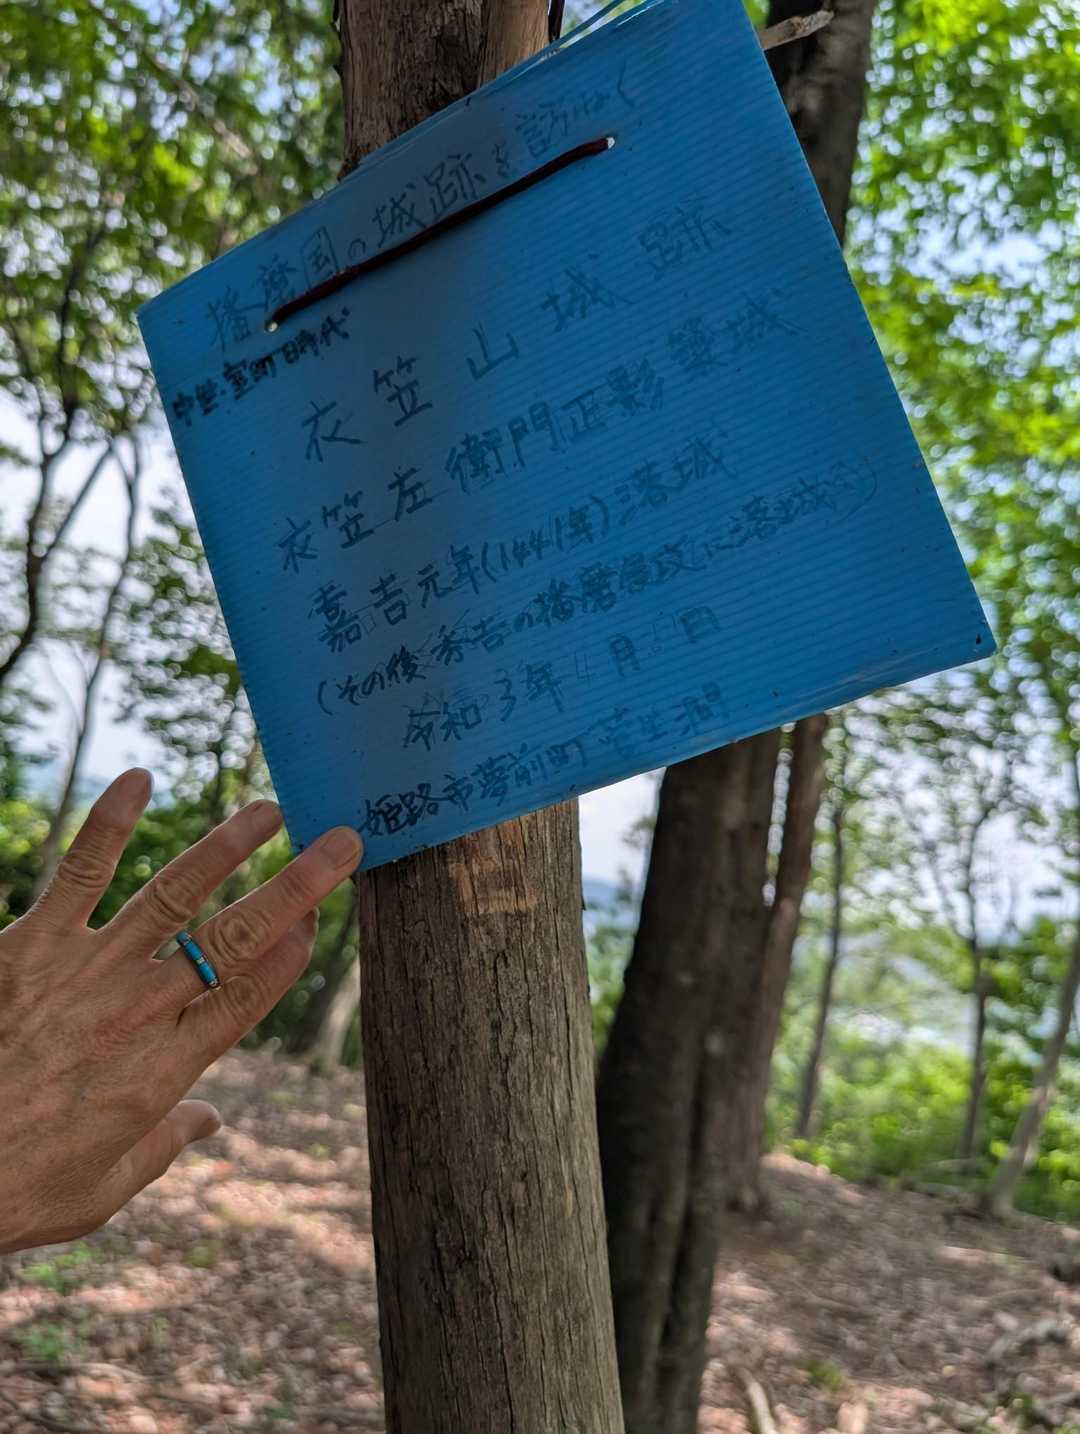 播磨国の城跡を訪ねく
中世・室町時代
衣笠山城跡
衣笠左衛門正影築城
嘉吉元年(1441年)落城
(その後秀吉の播磨侵攻に落城
令和3年4月
姫路市夢前町菅生澗